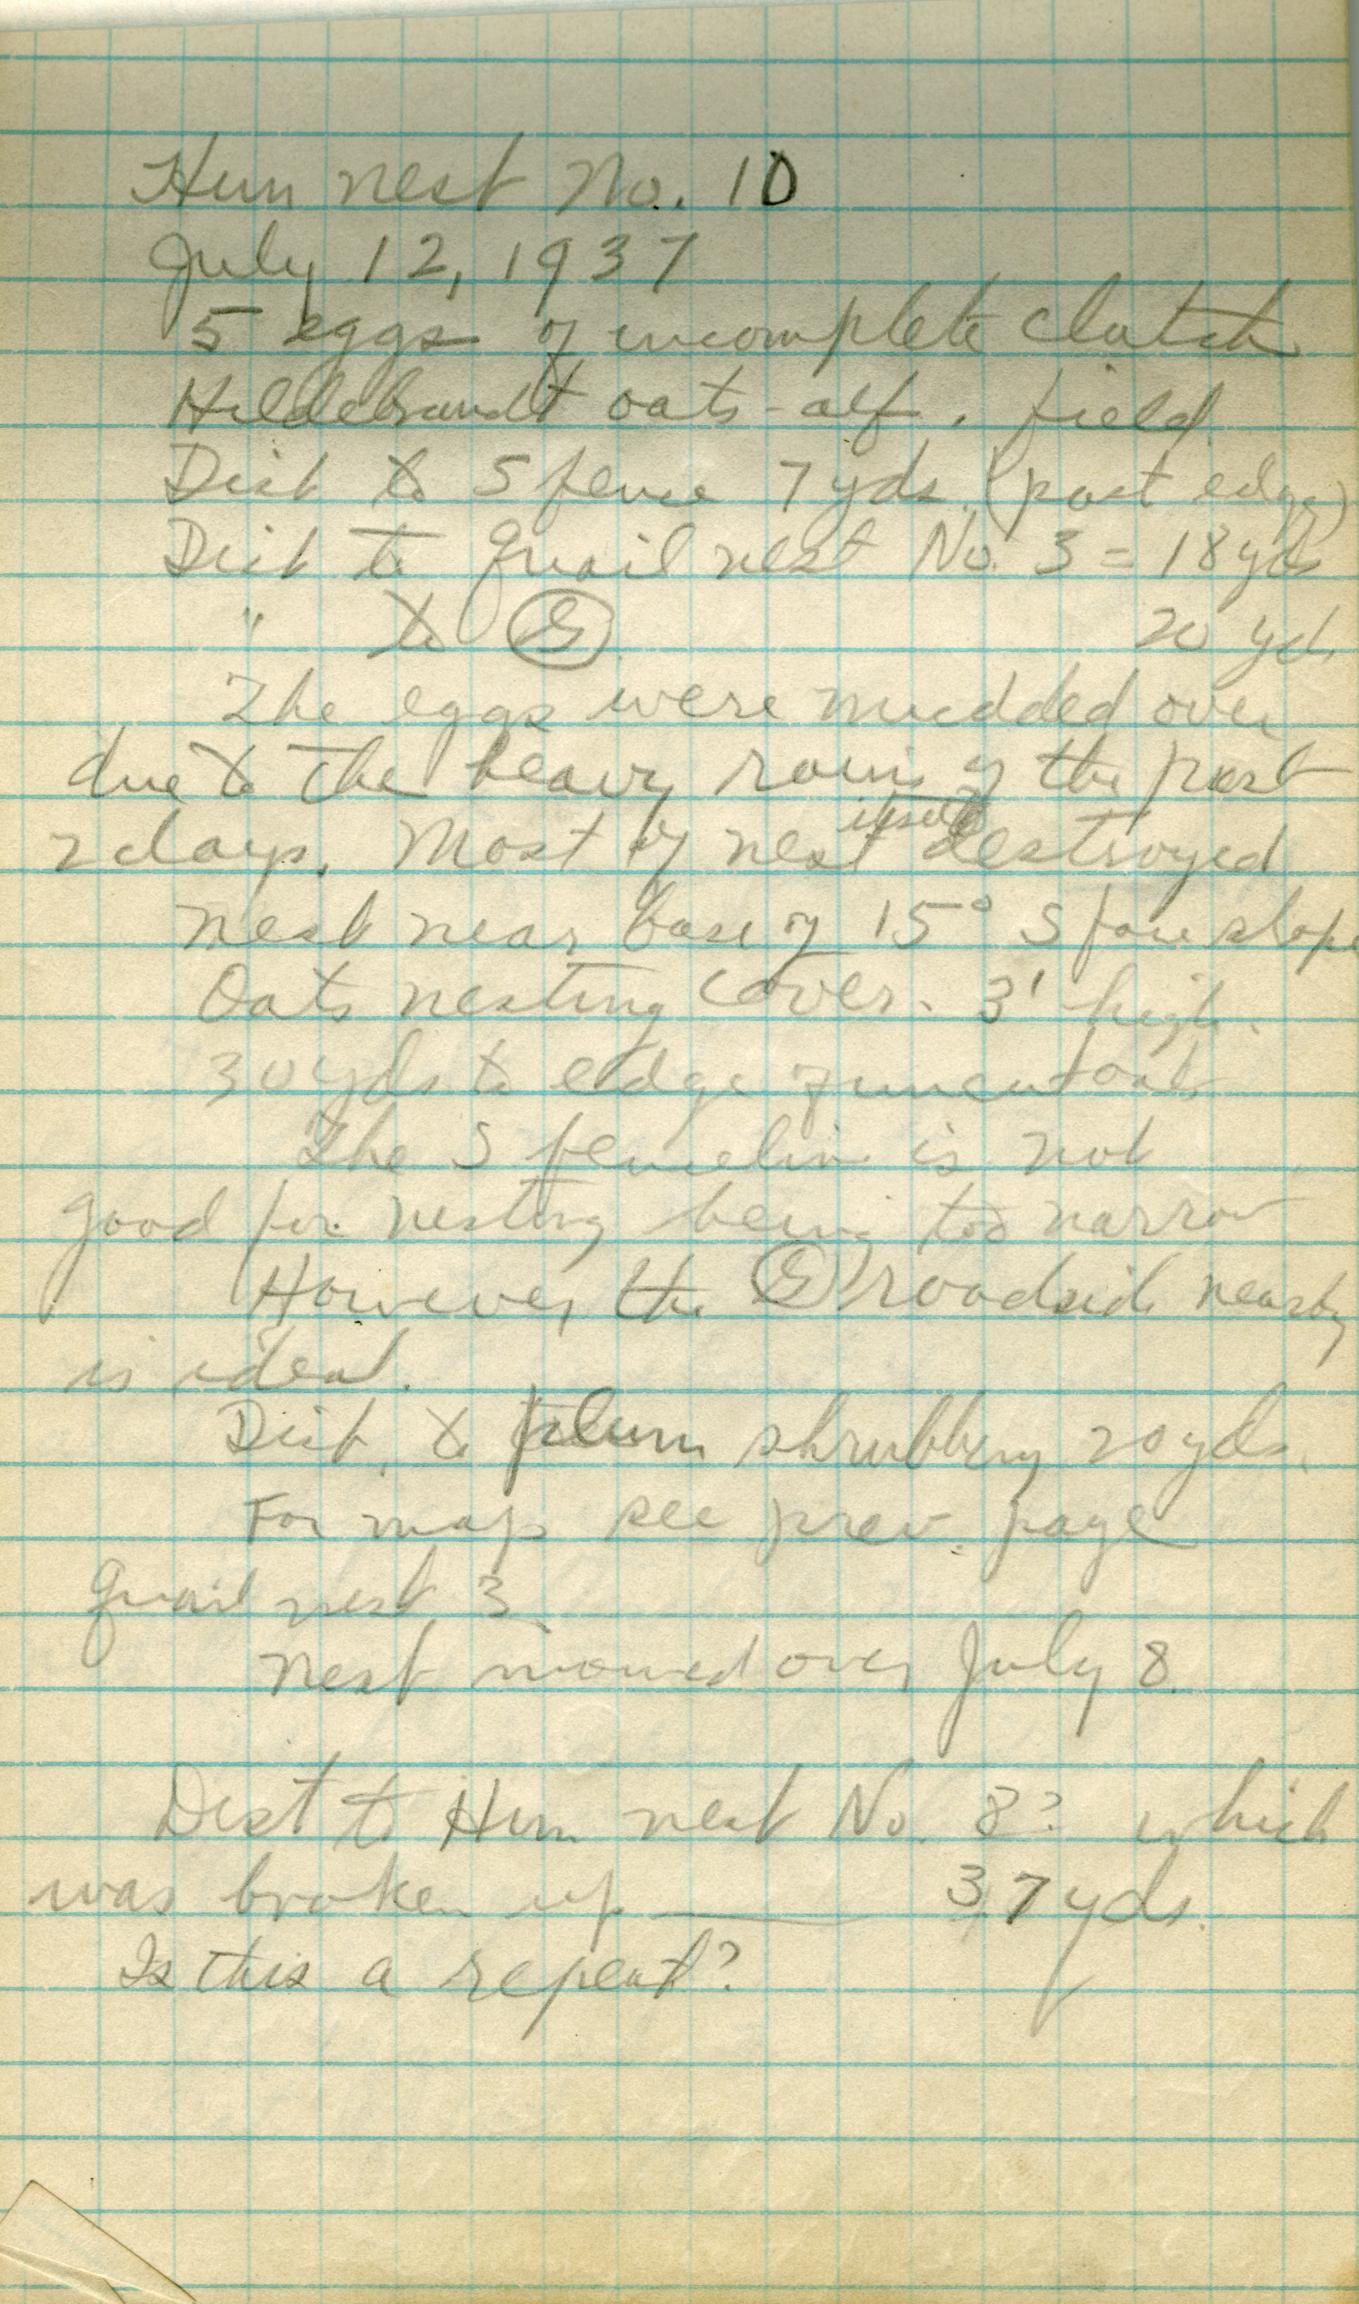 Hun nest No. 10
July 12, 1937
5 eggs of incomplete clutch
Hildebrandt oats-alf. field.
Dist to S fence 7 yds. (past edge)
Dist to Quail nest No. 3 = 18 yds
" to G 20 yd.
The eggs were mudded over
due to the heavy rains of the past
2 days. Most of nest itself destroyed
Nest near base of 15° S face slope
Oats nesting cover. 3' high.
30 yds to edge of uncut oats
The S fenceline is not
good for nesting being too narrow
However the G roadside nearby
is ideal.
Dist. to plum shrubbery 20 yds.
For map see prev. page
Quail nest 3
Nest mowed over July 8.
Dist to Hun nest No. 8? which
was broken up —— 37 yds.
Is this a repeat?